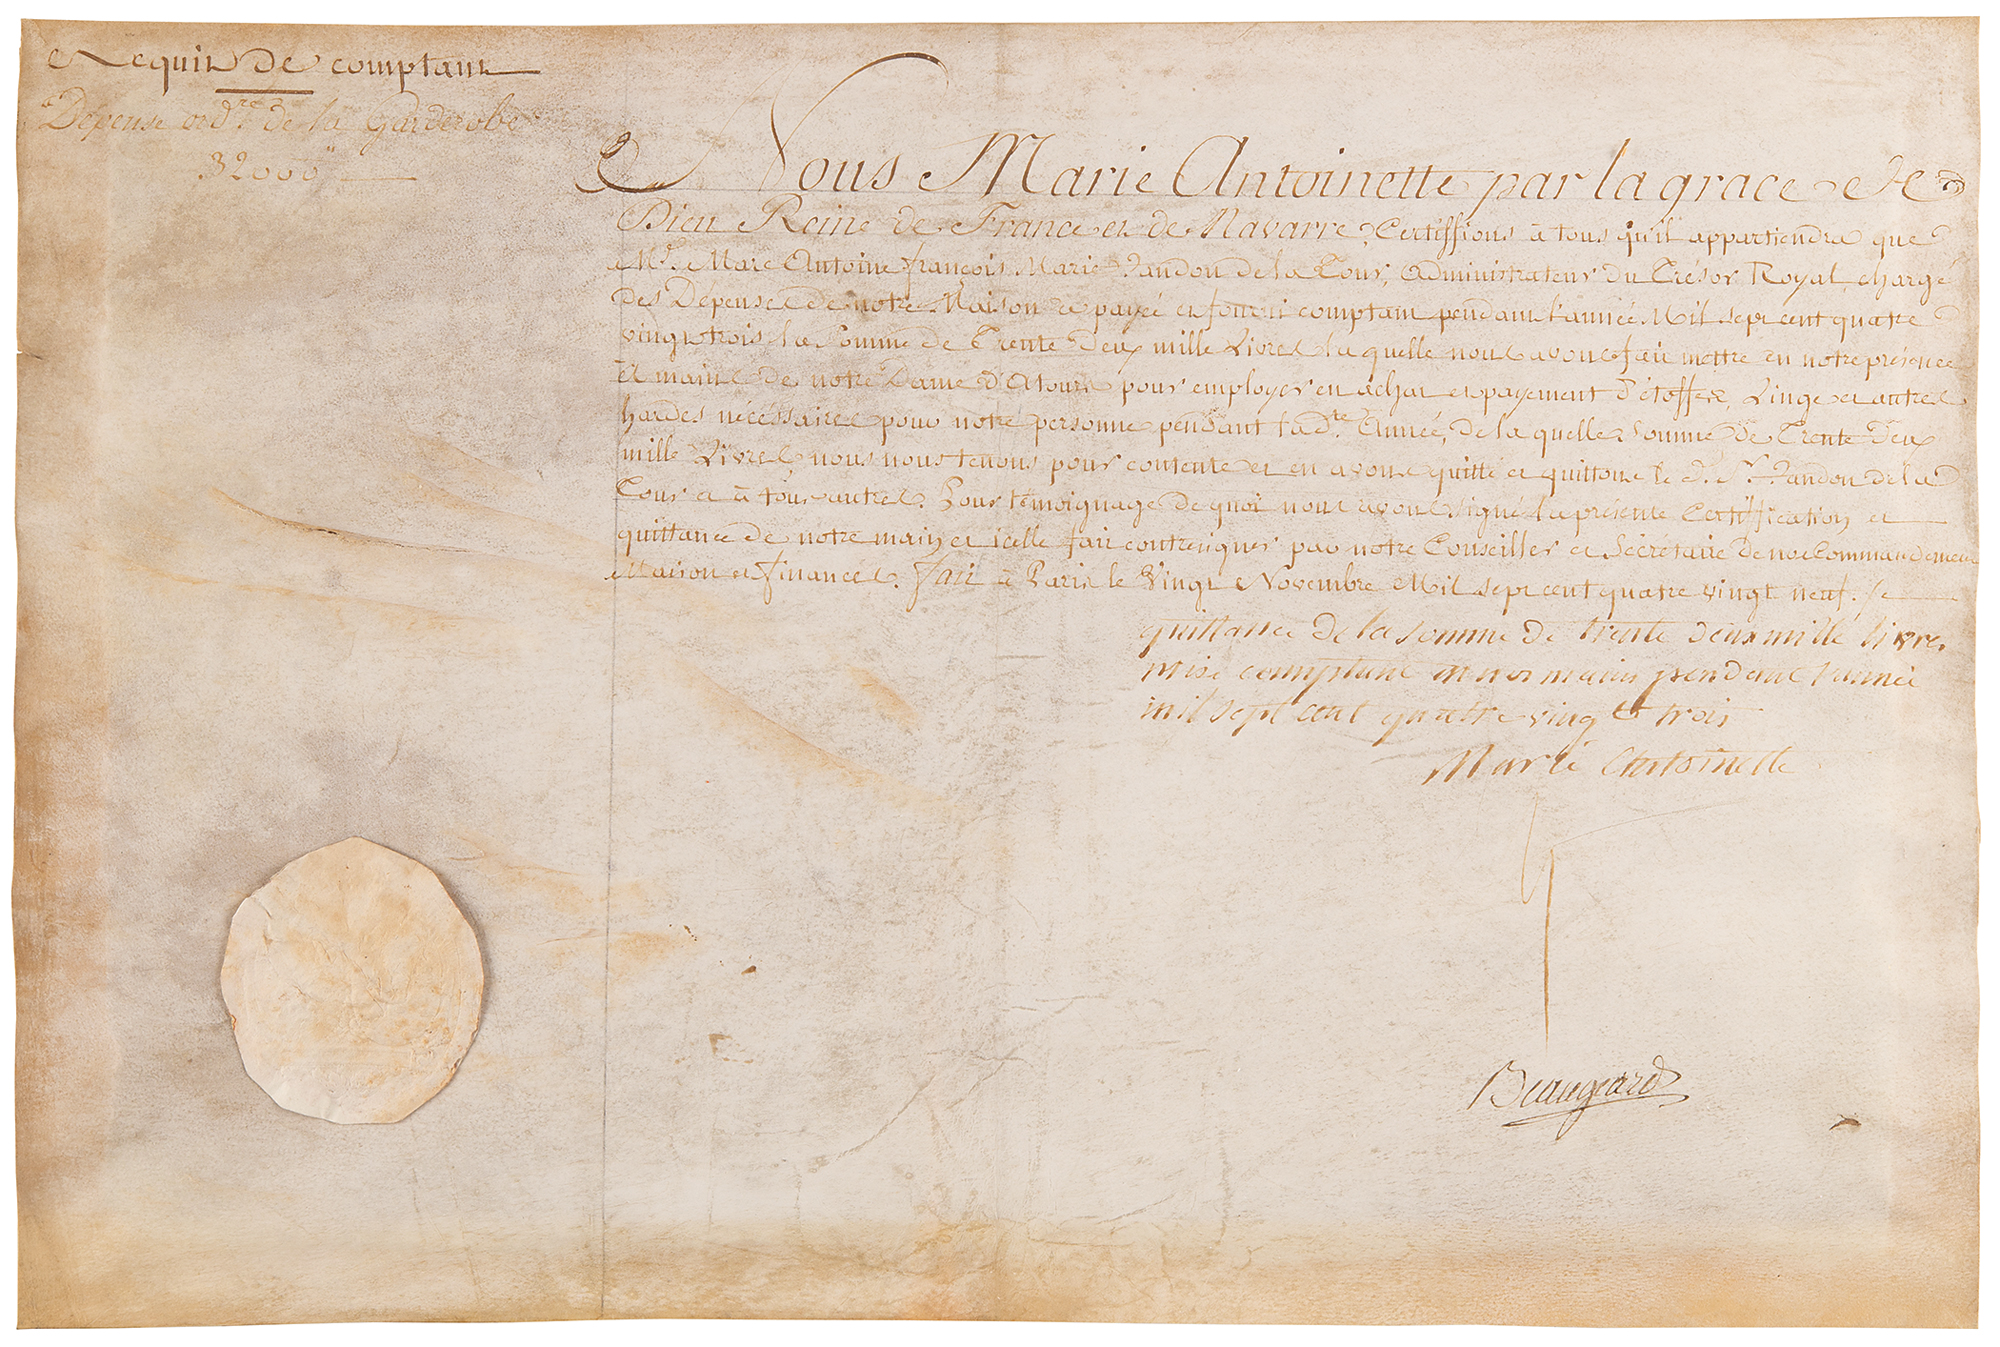 Acquit de comptant
Dépense ord.re de la Garderobe
32000"
Nous Marie Antoinette par la grace de
Dieu Reine de France et de Navarre, Certiffions à tous qu'il appartiendra que
M.r Marc Antoine françois Marie Randon de la Tour, Administrateur du Trésor Royal, chargé
des Dépenses de notre Maison a payé et fourni comptant pendant l'année Mil sept cent quatre
vingt trois la Somme de Trente Deux mille Livres la quelle nous avons fait mettre en notre présence
ès mains de notre Dame d'Atours pour employer en achat et payement d'étoffes, Linge et autres
hardes nécéssaires pour notre personne pendant lad.te Année, de la quelle Somme de Trente Deux
mille Livres nous nous tenons pour contente et en avons quitté et quittons le d. S.r Randon de la
Tour et à tous autres. Pour témoignage de quoi nous avons signé la présente Certiffication et
quittance de notre main et icelle fait contresigner par notre Conseiller et Sécrétaire de nos Commandemens
Maison et finances. fait à Paris le Vingt Novembre Mil sept cent quatre vingt neuf.
quittance de la somme de trente deux mille livres
mise comptant en nos mains pendant l'année
mil sept cent quatre vingt trois
Marie Antoinette
Beaugeard